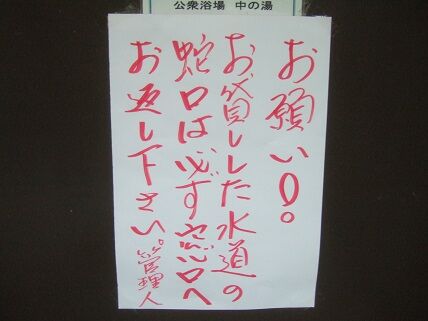 公衆浴場 中の湯
お願い()。
お貸しした水道の
蛇口は必ず窓口へ
お返し下さい。管理人